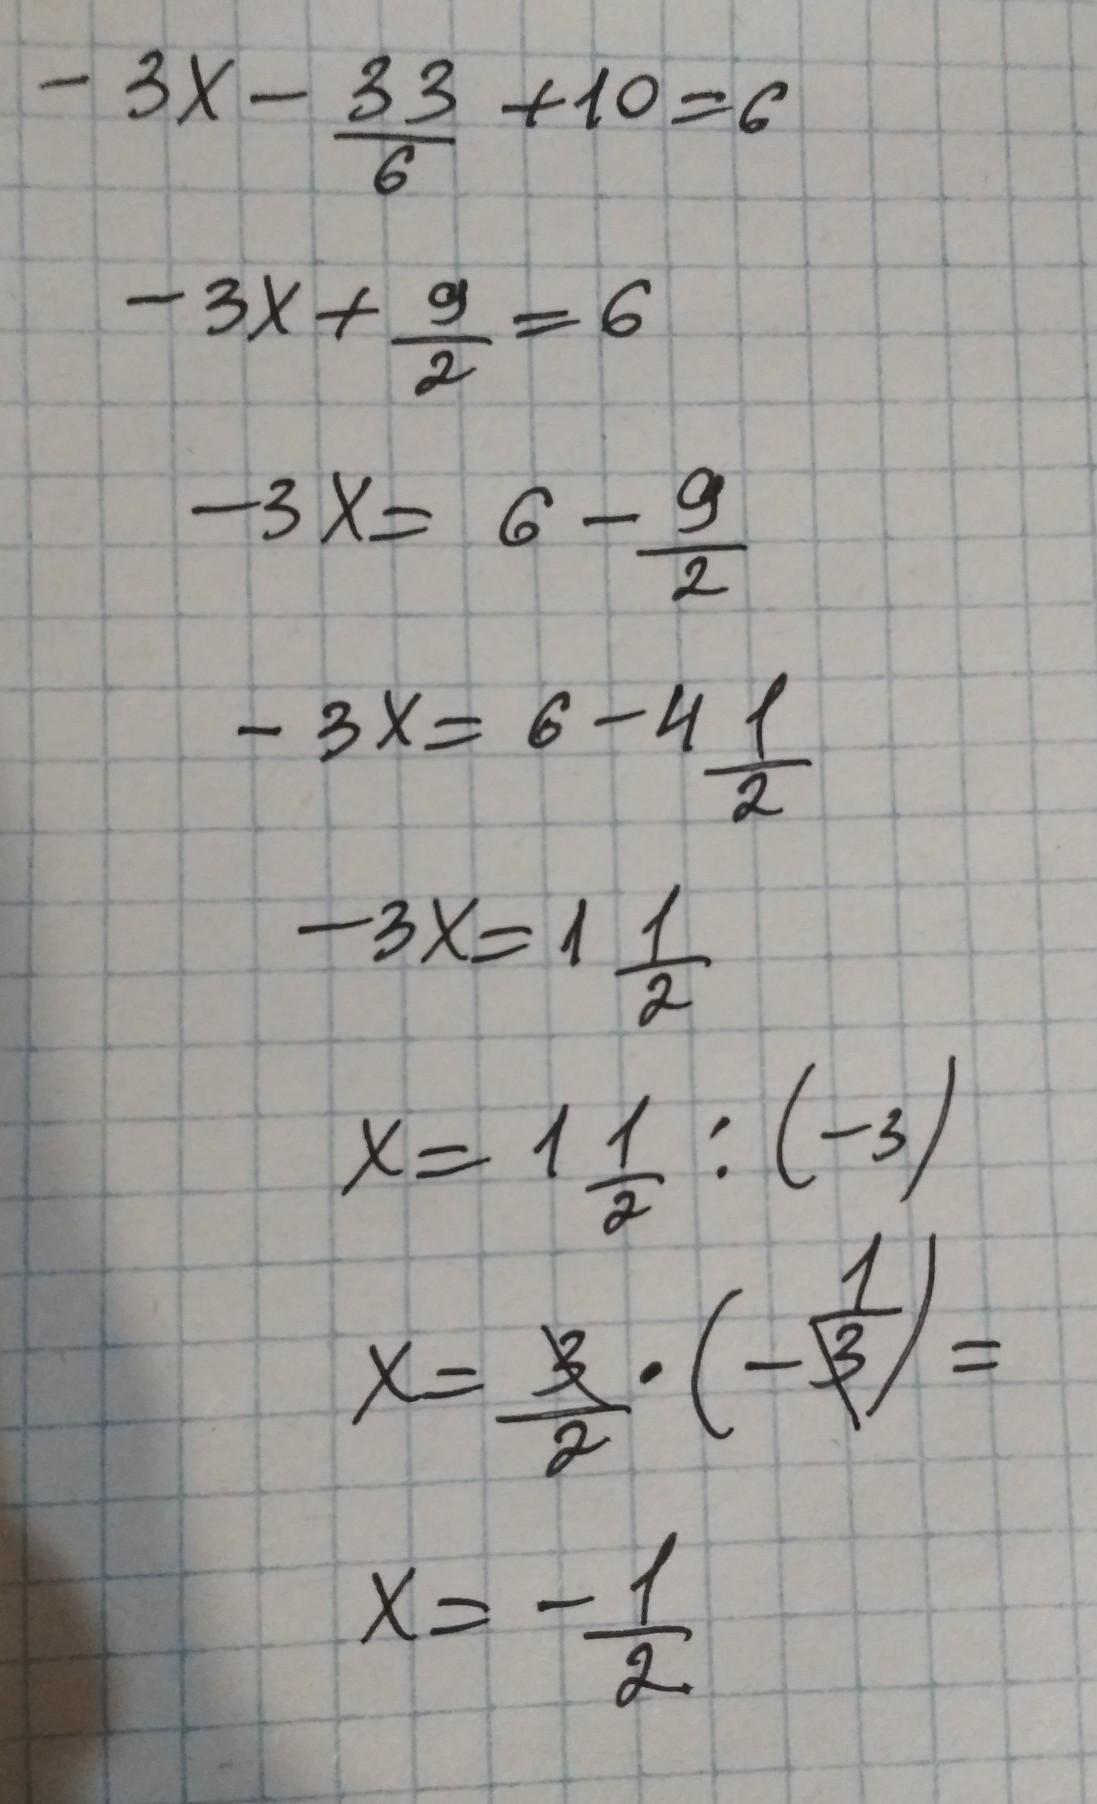 -3x - 33/6 + 10 = 6
-3x + 9/2 = 6
-3x = 6 - 9/2
-3x = 6 - 4 1/2
-3x = 1 1/2
x = 1 1/2 : (-3)
x = 3/2 · (-1/3) =
x = -1/2